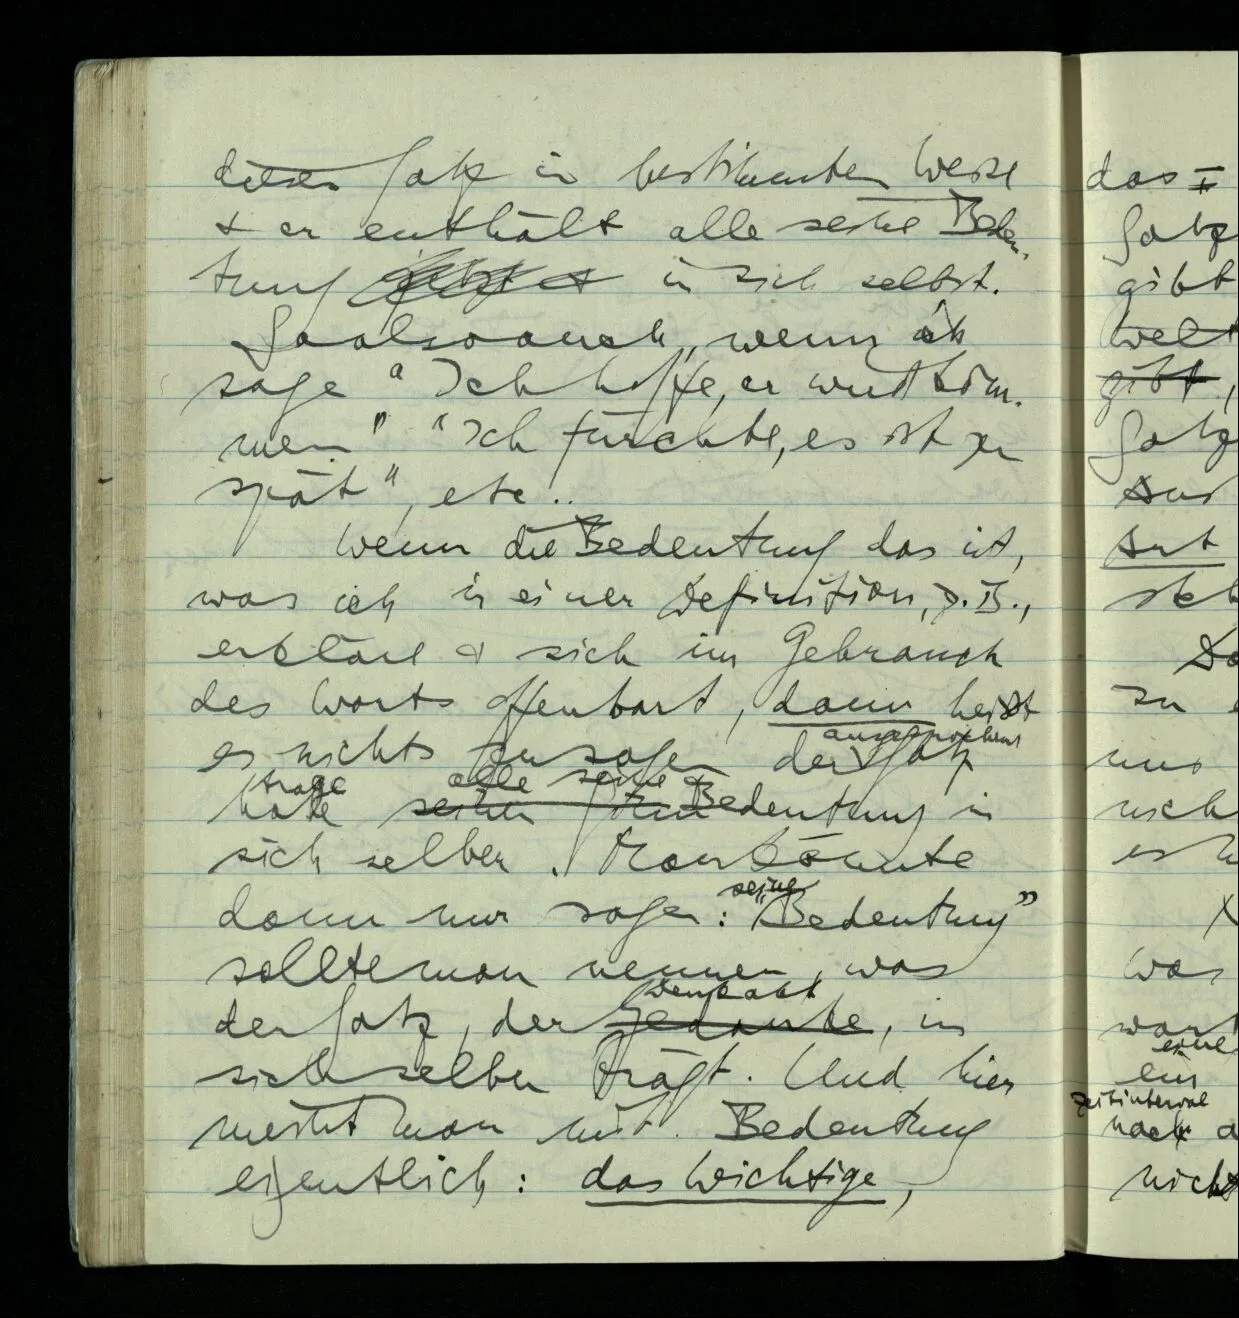 diesen Satz in bestimmter Weise
& er enthält alle seine Bedeu-
tung jetzt & in sich selbst.
So also auch, wenn ich
sage "Ich hoffe, er wird kom-
men" "Ich fürchte, es ist zu
spät", etc..
Wenn die Bedeutung das ist,
was ich in einer Definition, z.B.,
erkläre & sich im Gebrauch
des Worts offenbart, dann heißt
es nichts zu sagen der Satz
ausgesprochene
trage alle seine
habe seine Bedeutung in
sich selber. Man könnte
dann nur sagen: "Bedeutung"
seine
sollte man nennen, was
der Satz, der Gedanke, in
Denkakt
sich selber trägt. Und hier
meint man mit Bedeutung
eigentlich: das Wichtige,
das
Satz
gibt
Welt
gibt,
Satz
Art
zu
uns
was
eine
ein
Zeitinterval
nach
nicht